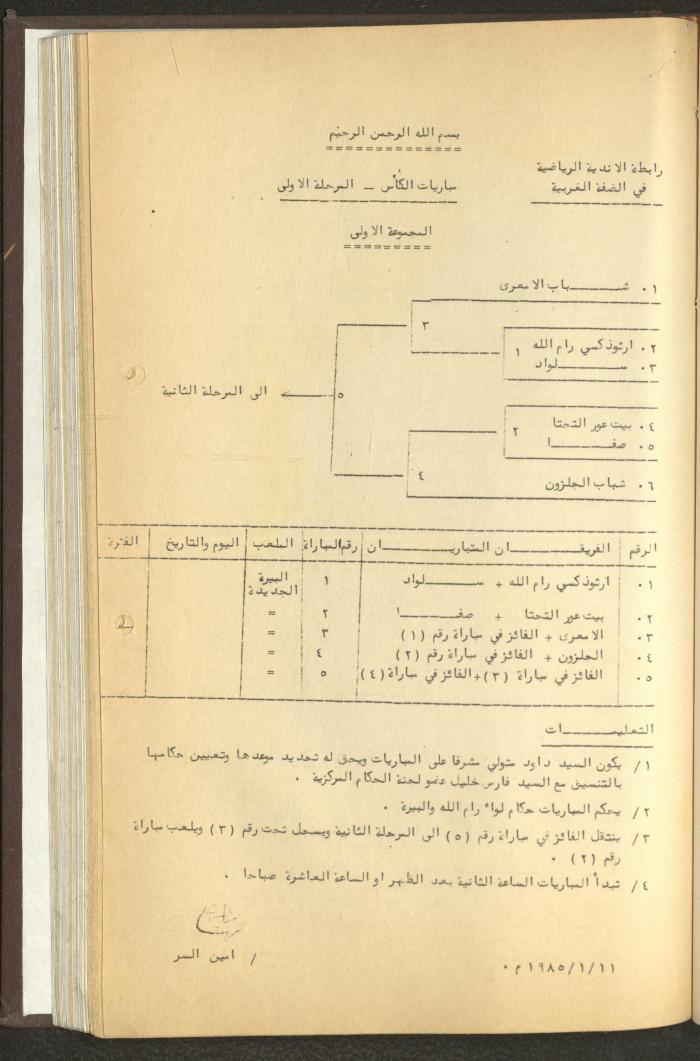 بسم الله الرحمن الرحيم
رابطة الاندية الرياضية
في الضفة الغربية
مباريات الكأس - المرحلة الاولى
المجموعة الاولى
١٠ شــــباب الامعرى
٣
٢٠ ارثوذكسي رام الله
١
٣٠ ســــلواد
الى المرحلة الثانية
٥
٤٠ بيت عور التحتا
٢
٥٠ صفــــا
٤
٦٠ شباب الجلزون
الرقم الفريقــــان المتباريــــان رقم المباراة الملعب اليوم والتاريخ الفترة
١٠ ارثوذكسي رام الله + ســــلواد ١ البيرة الجديدة
٢٠ بيت عور التحتا + صفــــا ٢ =
٣٠ الامعرى + الفائز في مباراة رقم (١) ٣ =
٤٠ الجلزون + الفائز في مباراة رقم (٢) ٤ =
٥٠ الفائز في مباراة (٣)+الفائز في مباراة (٤) ٥ =
التعليمــــات
١/ يكون السيد داود متولي مشرفا على المباريات ويحق له تحديد موعدها وتعيين حكامها
بالتنسيق مع السيد فارس خليل عضو لجنة الحكام المركزية .
٢/ يحكم المباريات حكام لواء رام الله والبيرة .
٣/ ينتقل الفائز في مباراة رقم (٥) الى المرحلة الثانية ويسجل تحت رقم (٣) ويلعب مباراة
رقم (٢) .
٤/ تبدأ المباريات الساعة الثانية بعد الظهر او الساعة العاشرة صباحا .
/ امين السر
١٩٨٥/١/١١ م .